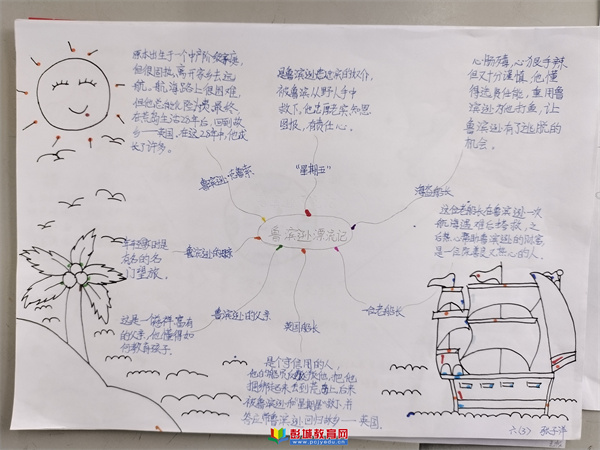 原本出生于一个中产阶级家庭,
但很固执,离开家乡去远
航。航海路上很困难,
但他总能化险为夷。最终
在荒岛生活28年后,回到故
乡——英国。在这28年中,他成
长了许多。
鲁滨逊·克鲁索
是鲁滨逊忠实的奴仆,
被鲁滨从野人手中
救下,他忠厚老实,知恩
图报,有责任心。
“星期五”
心肠残,心狠手辣
但又十分谨慎,他懂
得选贤任能,重用鲁
滨逊为他打鱼,让
鲁滨逊有了逃跑的
机会。
海盗船长
鲁滨逊漂流记
这位老船长在鲁滨逊一次
航海遇难后搭救,之
后热心帮助鲁滨逊的财富
是一位
又热心的人。
一位老船长
年轻时是
有名的名
门望族。
鲁滨逊的母亲
这是一个慈祥富有
的父亲,他懂得如
何教育孩子。
鲁滨逊的父亲
英国船长
是个守信用的人,
他的船员
他,把他
捆绑起来丢到荒岛上,后来
被鲁滨逊和星期五救下,并
带鲁滨逊回归故乡——英国。
六(3) 张子洋
彭城教育网
www.pcjyedu.cn